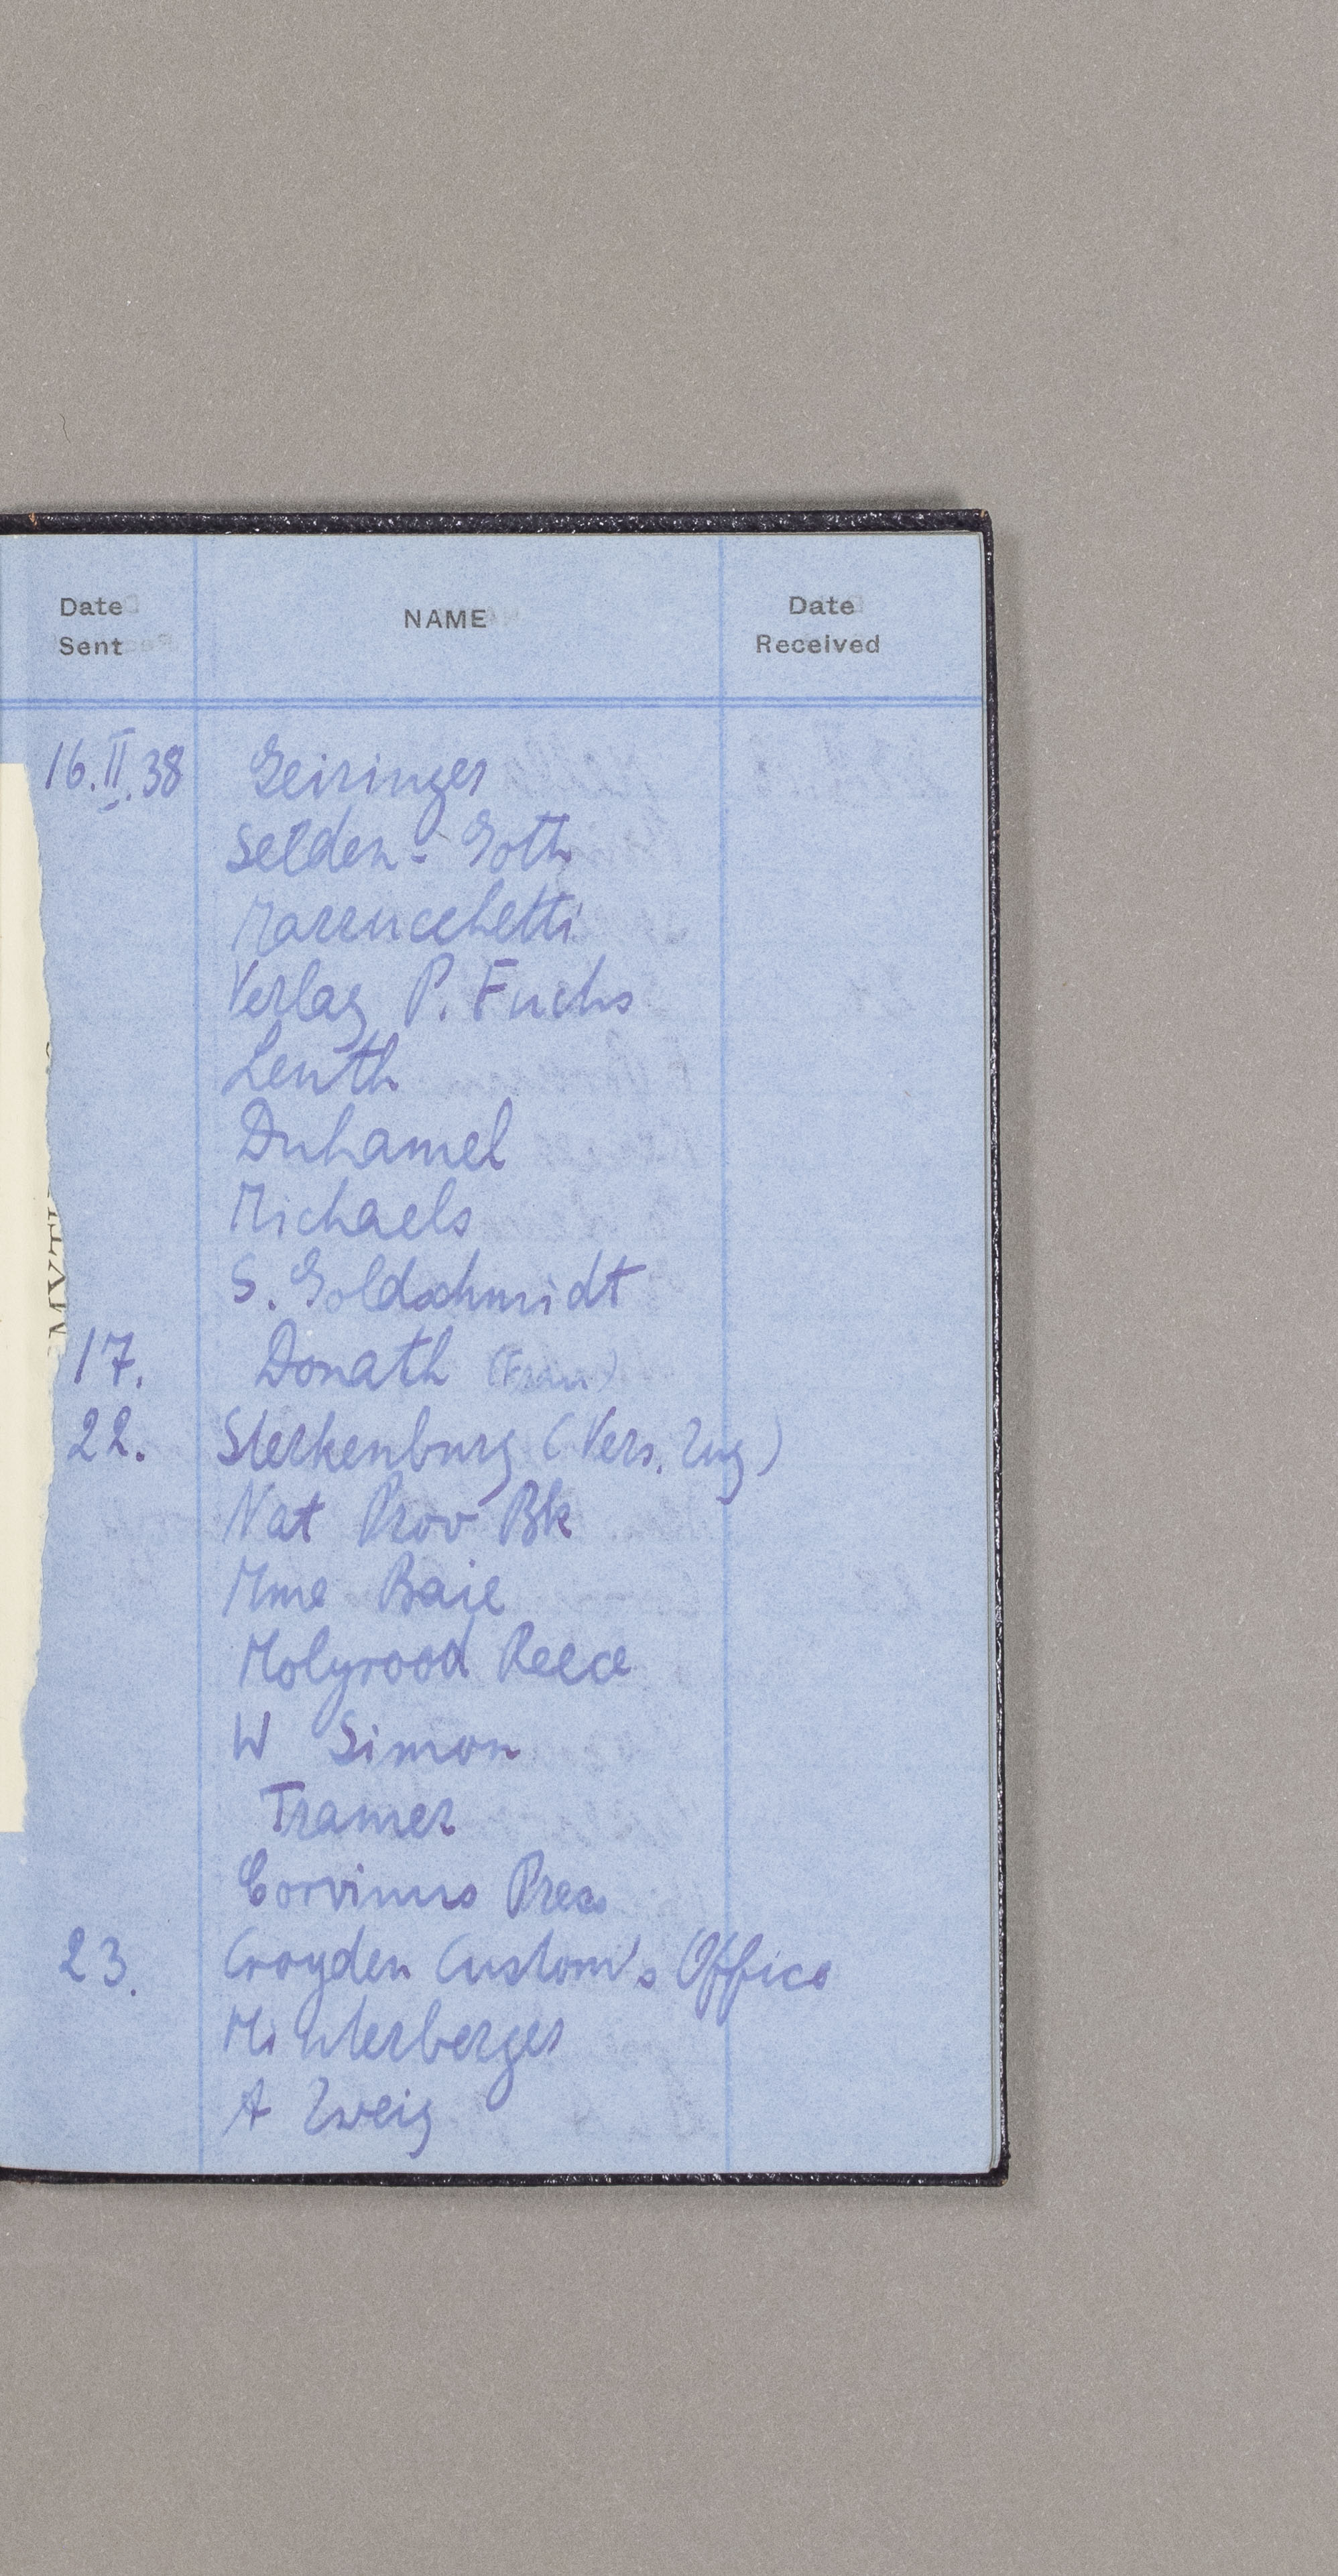 Date Sent NAME Date Received
16.II.38 Geiringer
Selden-Goth
Mazzucchetti
Verlag P. Fuchs
Leuth
Duhamel
Michaels
S. Goldschmidt
17. Donath (Frau)
22. Sterkenburg (Vers. Zug)
Nat Prov Bk
Mme Baie
Holyrood Reece
W Simon
Tramer
Corvinus Press
23. Croyden Custom's Office
Hinterberger
A Zweig